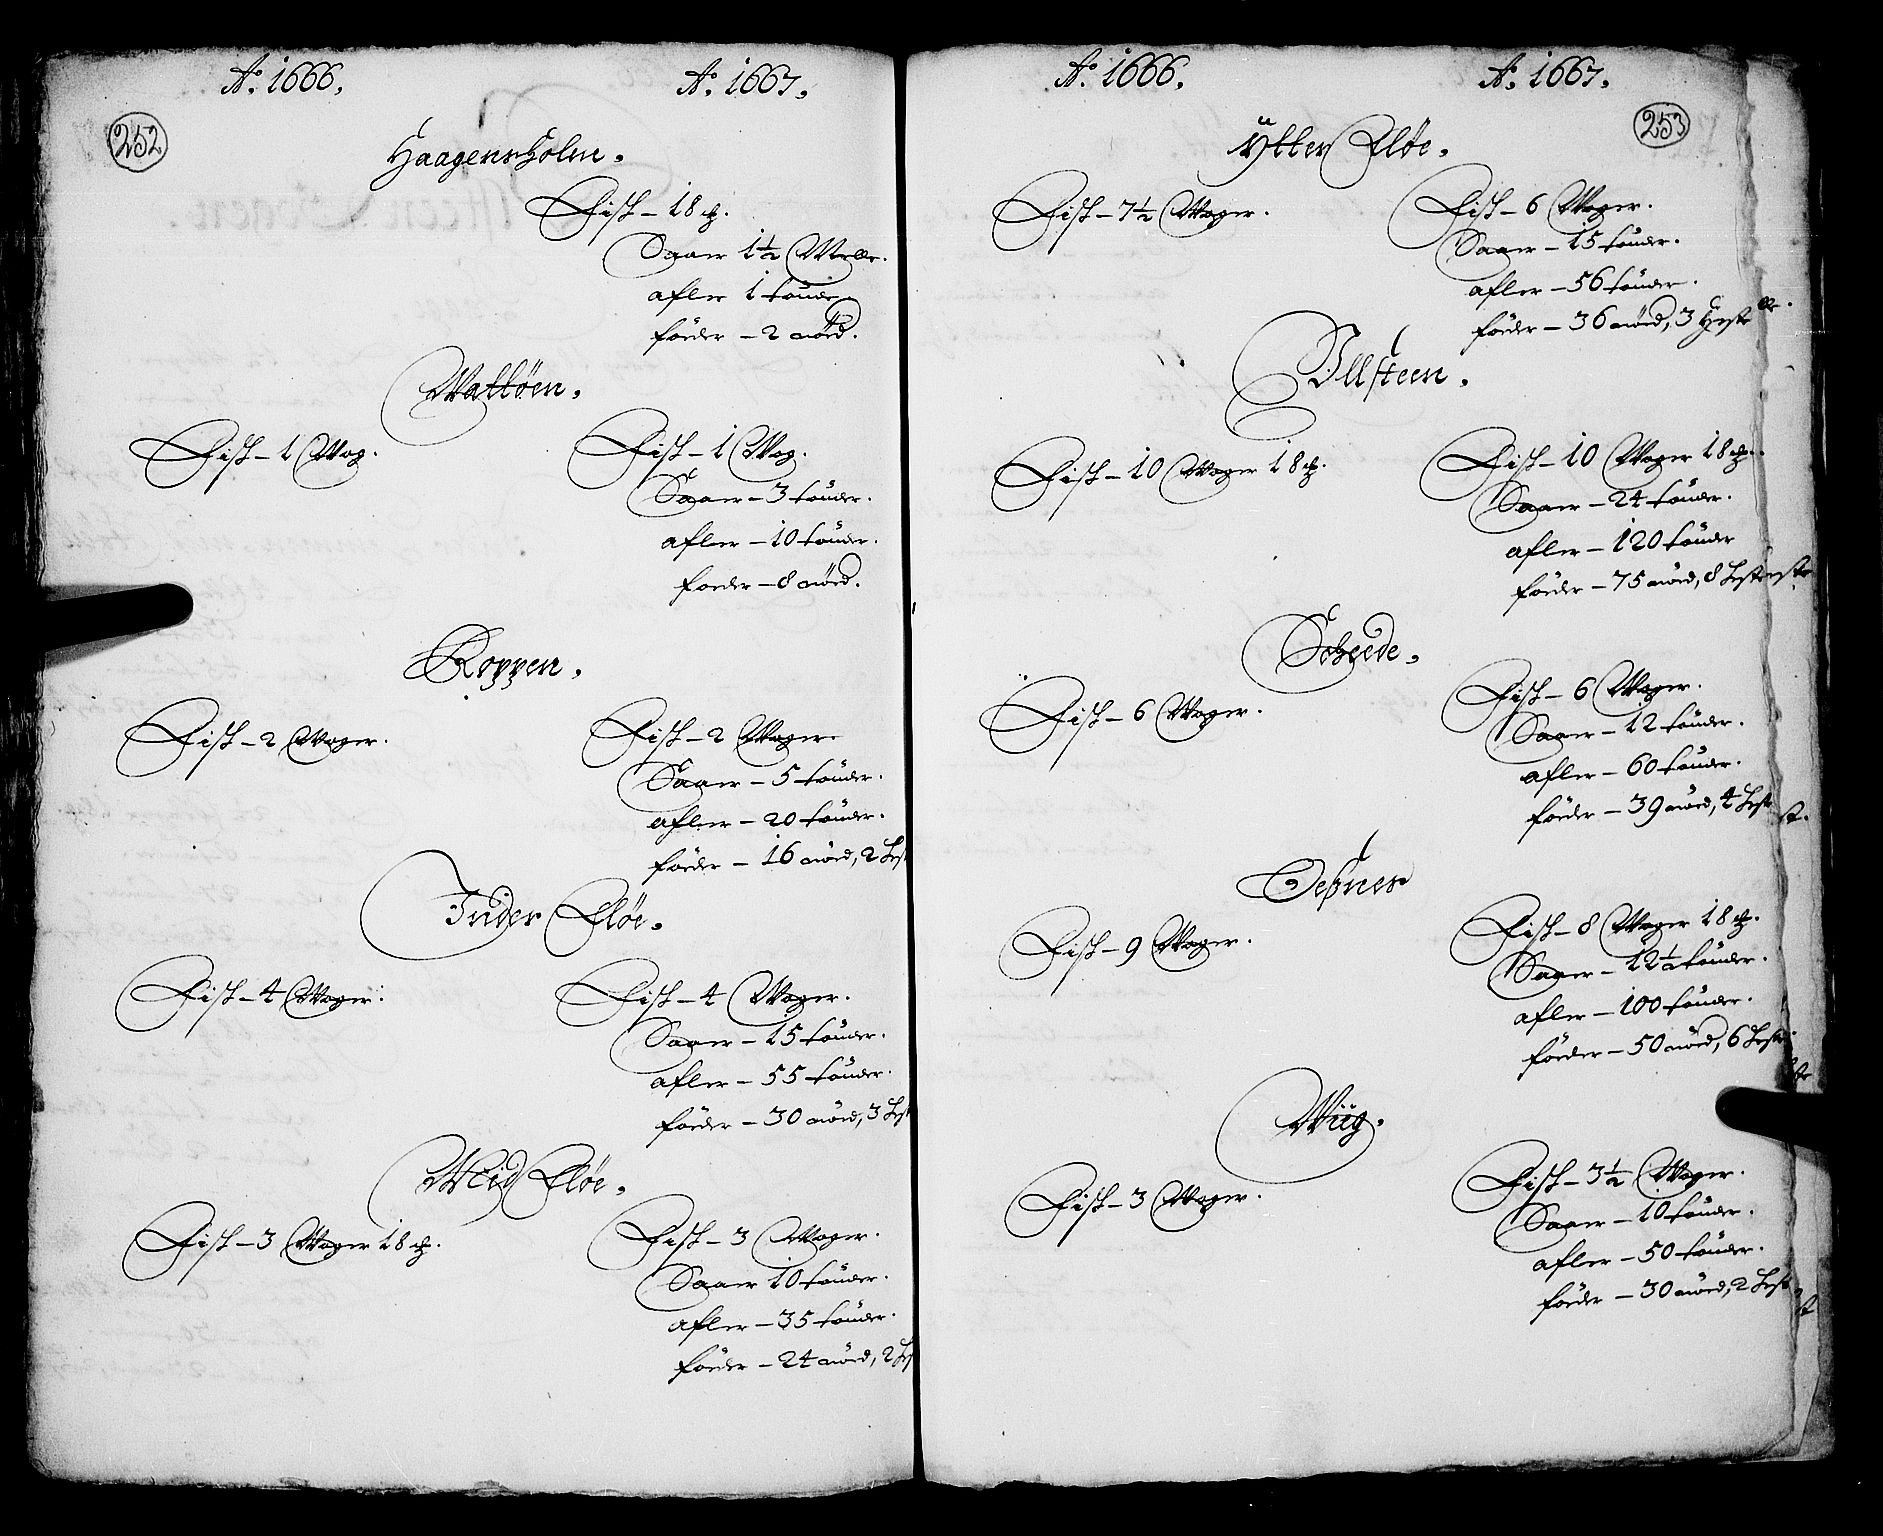 Aº. 1666.
Aº. 1667.
252
Haagensholm.
Fisk – 18 ℔.
Saaer 1½ Mæller.
afler 1 tønde.
føder – 2 nød.
Wattøen.
Fisk – 1 Wog.
Fisk – 1 Wog.
Saaer – 3 tønder.
afler – 10 tønder.
foder – 8 nød.
Roppen.
Fisk – 2 Woger.
Fisk – 2 Woger.
Saaer – 5 tønder.
afler – 20 tønder.
føder – 16 nød, 2 Hest
Inder Fløe.
Fisk – 4 Woger.
Fisk – 4 Woger.
Saaer – 15 tønder.
afler – 55 tønder.
føder – 30 nød, 3 Hest
Mid Fløe.
Fisk – 3 Woger 18 ℔.
Fisk – 3 Woger.
Saaer 10 tønder.
afler – 35 tønder.
føder – 24 nød, 2 Hest
Aº. 1666.
Aº. 1667.
253
Ytter Fløe.
Fisk – 7½ Woger.
Fisk – 6 Woger.
Saaer – 15 tønder.
afler – 56 tønder.
føder – 36 nød, 3 Heste
Illsteen.
Fisk – 10 Woger 18 ℔.
Fisk – 10 Woger 18 ℔.
Saaer – 24 tønder.
afler – 120 tønder
føder – 75 nød, 8 Heste
Scheede.
Fisk – 6 Woger.
Fisk – 6 Woger.
Saaer – 12 tønder.
afler – 60 tønder.
føder – 39 nød, 4 Hest
Oeßnes
Fisk – 9 Woger.
Fisk – 8 Woger 18 ℔.
Saaer – 12½ tønder.
afler – 100 tønder.
føeder – 50 nød, 6 Heste
Wiig.
Fisk – 3 Woger.
Fisk – 3½ Woger.
Saaer – 10 tønder.
afler – 50 tønder.
føeder – 30 nød, 2 Hest